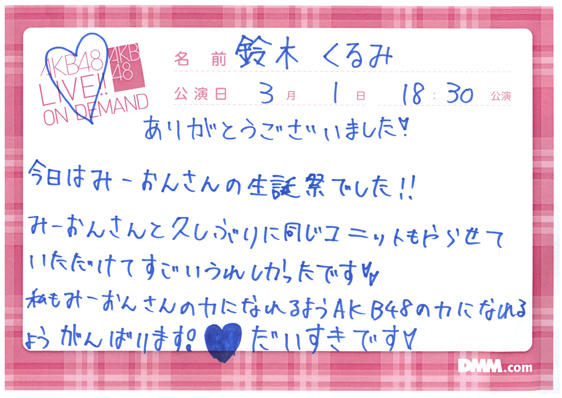 AKB48 AKB48
LIVE!!
ON DEMAND
名前 鈴木 くるみ
公演日 3月 1日 18:30 公演
ありがとうございました♡
今日はみーおんさんの生誕祭でした!!
みーおんさんと久しぶりに同じユニットもやらせて
いただけてすごいうれしかったです♡♡
私もみーおんさんの力になれるようAKB48の力になれる
ようがんばります! ♥ だいすきです♡
DMM.com